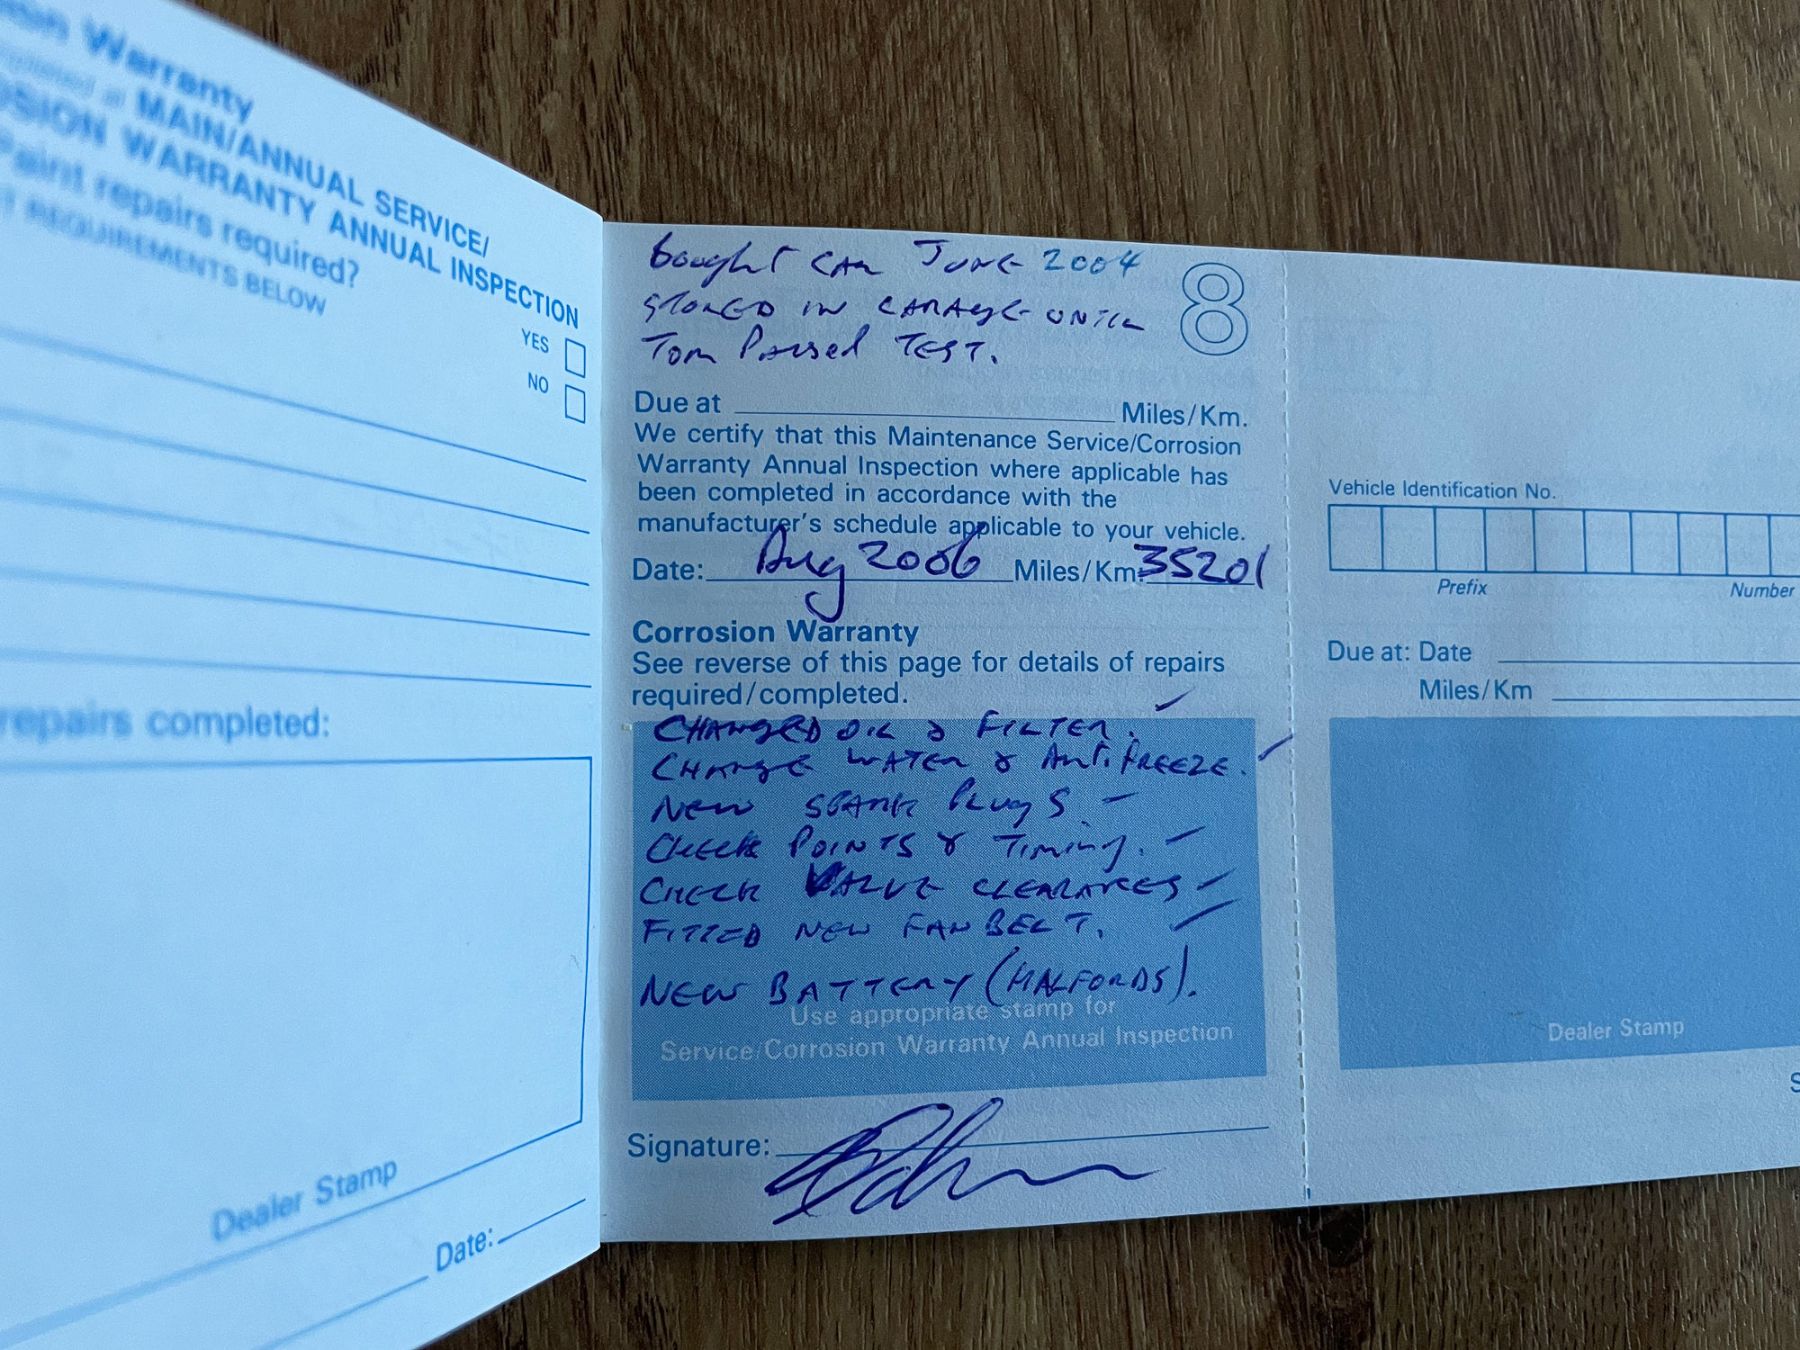 Warranty
MAIN/ANNUAL SERVICE/
WARRANTY ANNUAL INSPECTION
Paint repairs required?
REQUIREMENTS BELOW
YES
NO
repairs completed:
Dealer Stamp
Date:
bought CAR JUNE 2004
STORED IN GARAGE UNTIL
Tom Passed TEST.
8
Due at Miles/Km.
We certify that this Maintenance Service/Corrosion
Warranty Annual Inspection where applicable has
been completed in accordance with the
manufacturer's schedule applicable to your vehicle.
Date: Aug 2006 Miles/Km. 35201
Corrosion Warranty
See reverse of this page for details of repairs
required/completed.
CHANGED OIL & FILTER. ✓
CHANGE WATER & ANTIFREEZE. ✓
NEW SPARK PLUGS ✓
CHECK POINTS & TIMING. ✓
CHECK VALVE CLEARANCES ✓
FITTED NEW FAN BELT. ✓
NEW BATTERY (HALFORDS).
Use appropriate stamp for
Service/Corrosion Warranty Annual Inspection
Signature:
Vehicle Identification No.
Prefix Number
Due at: Date
Miles/Km
Dealer Stamp